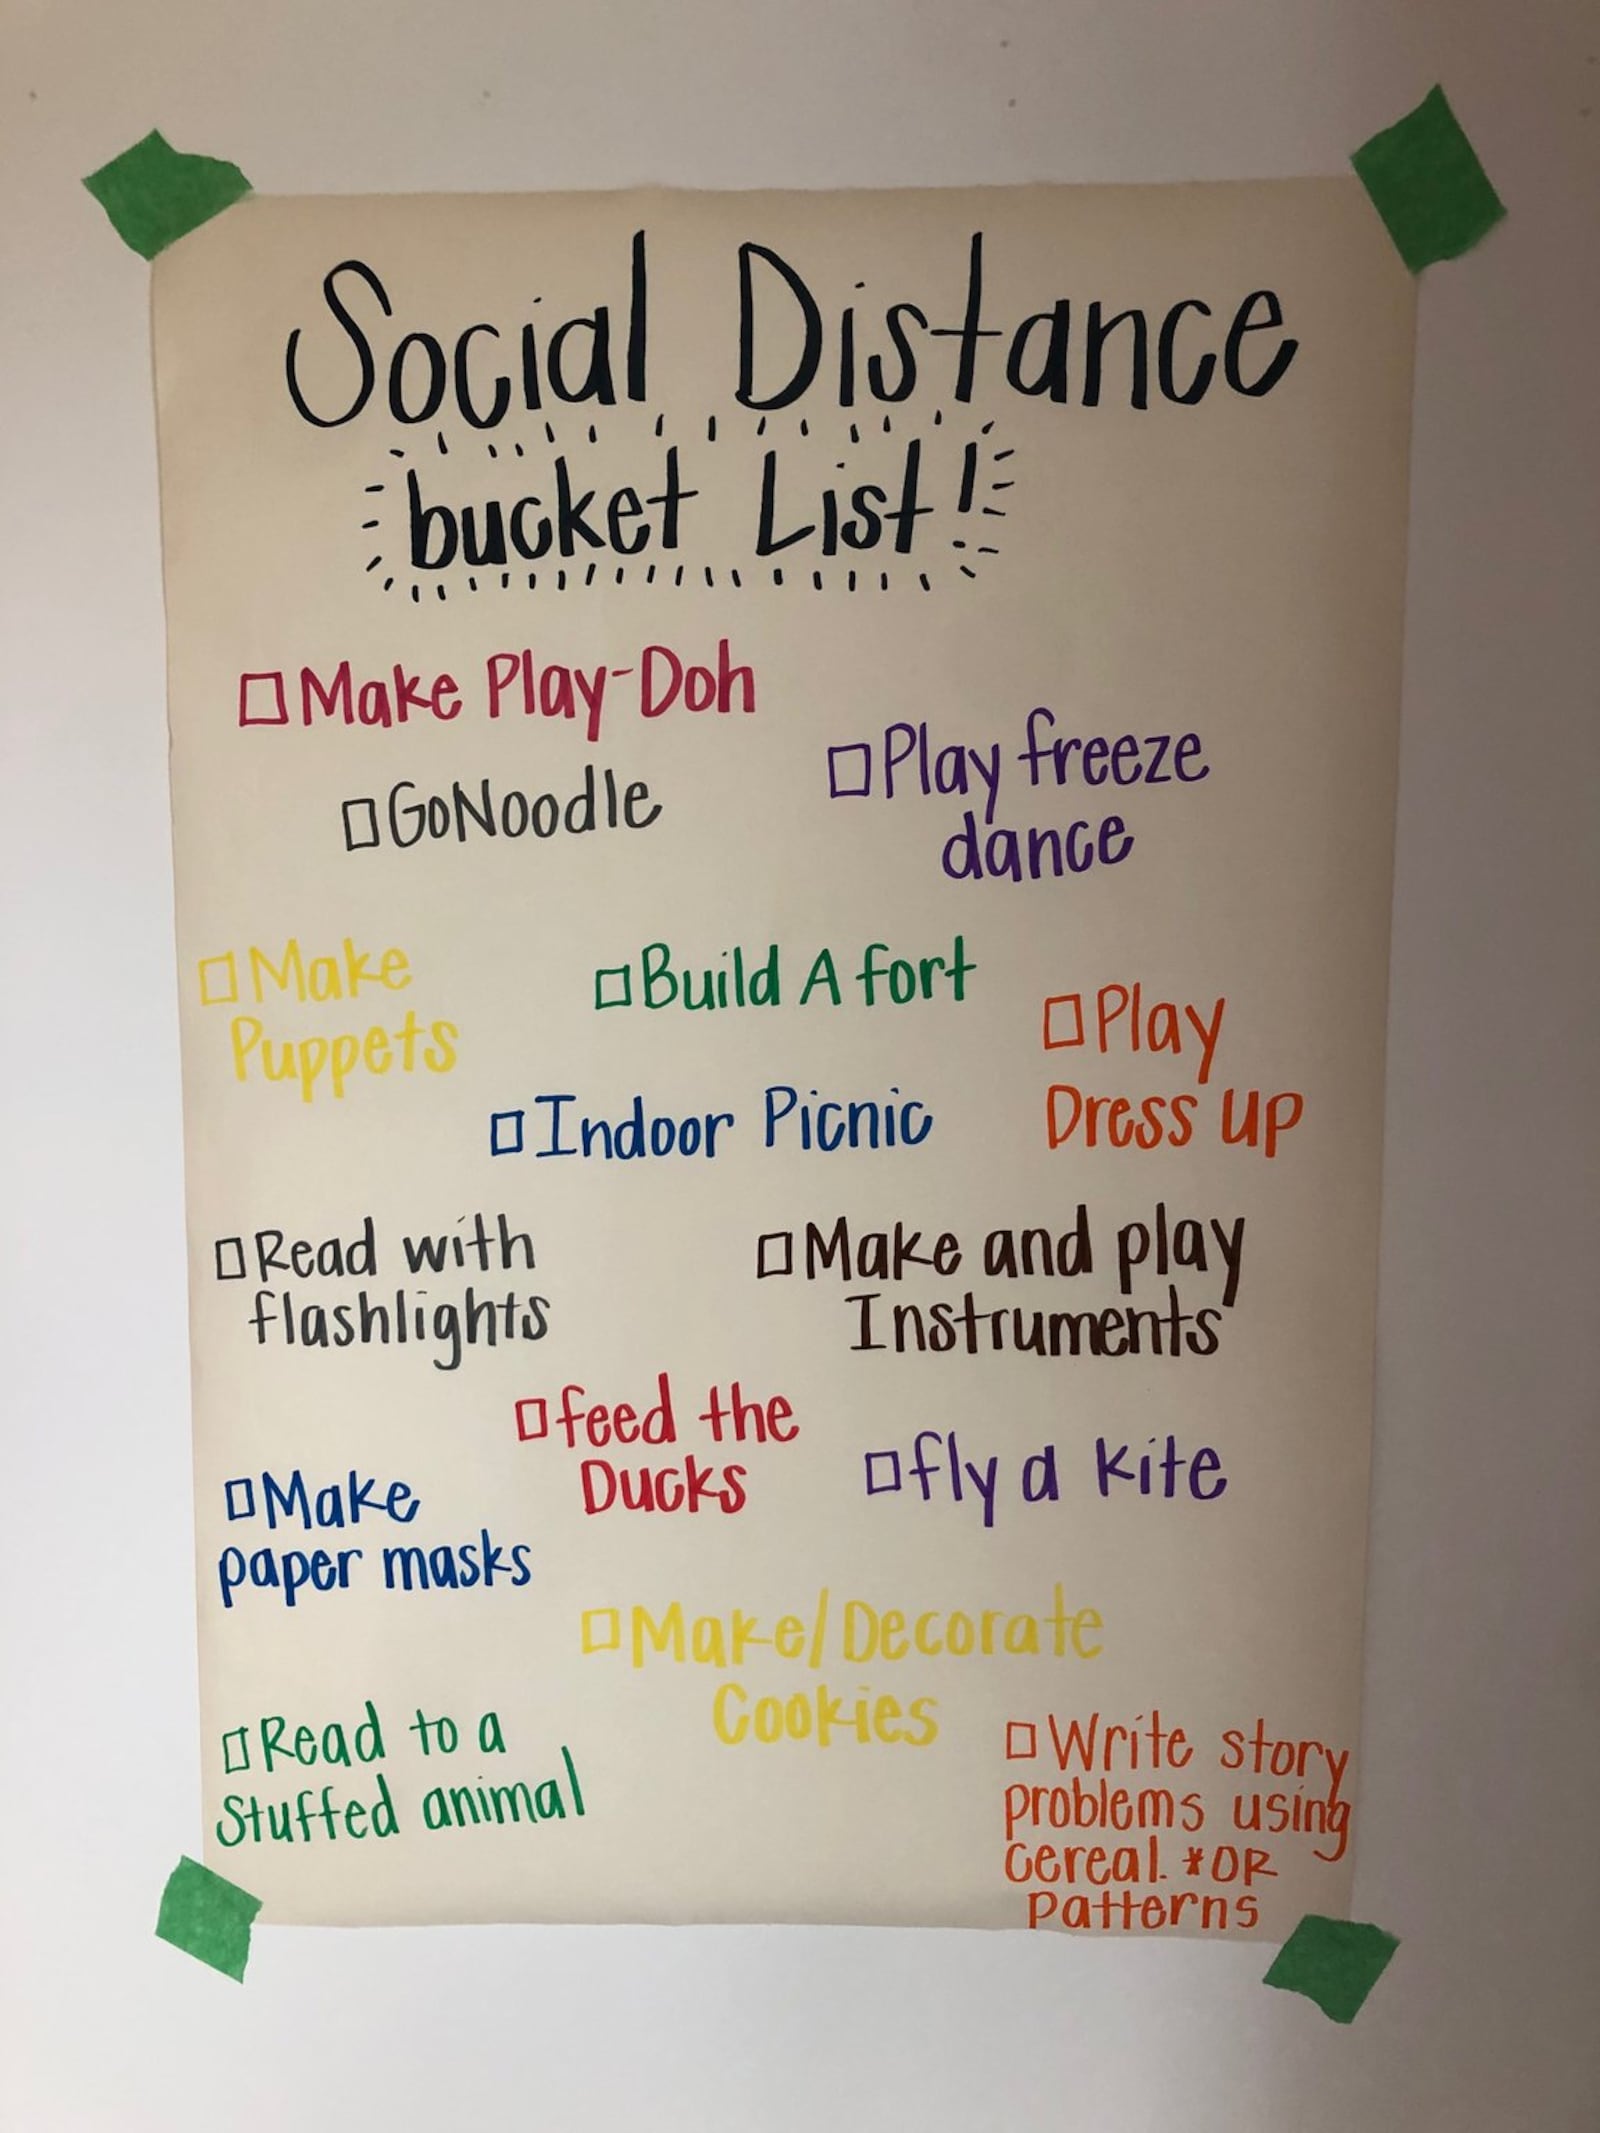 Social Distance
bucket List!
□ Make Play-Doh
□ GoNoodle
□ Play freeze
dance
□ Make
Puppets
□ Build A fort
□ Play
Dress up
□ Indoor Picnic
□ Read with
flashlights
□ Make and play
Instruments
□ feed the
Ducks
□ fly a kite
□ Make
paper masks
□ Make/Decorate
Cookies
□ Read to a
Stuffed animal
□ Write story
problems using
cereal. *OR
patterns